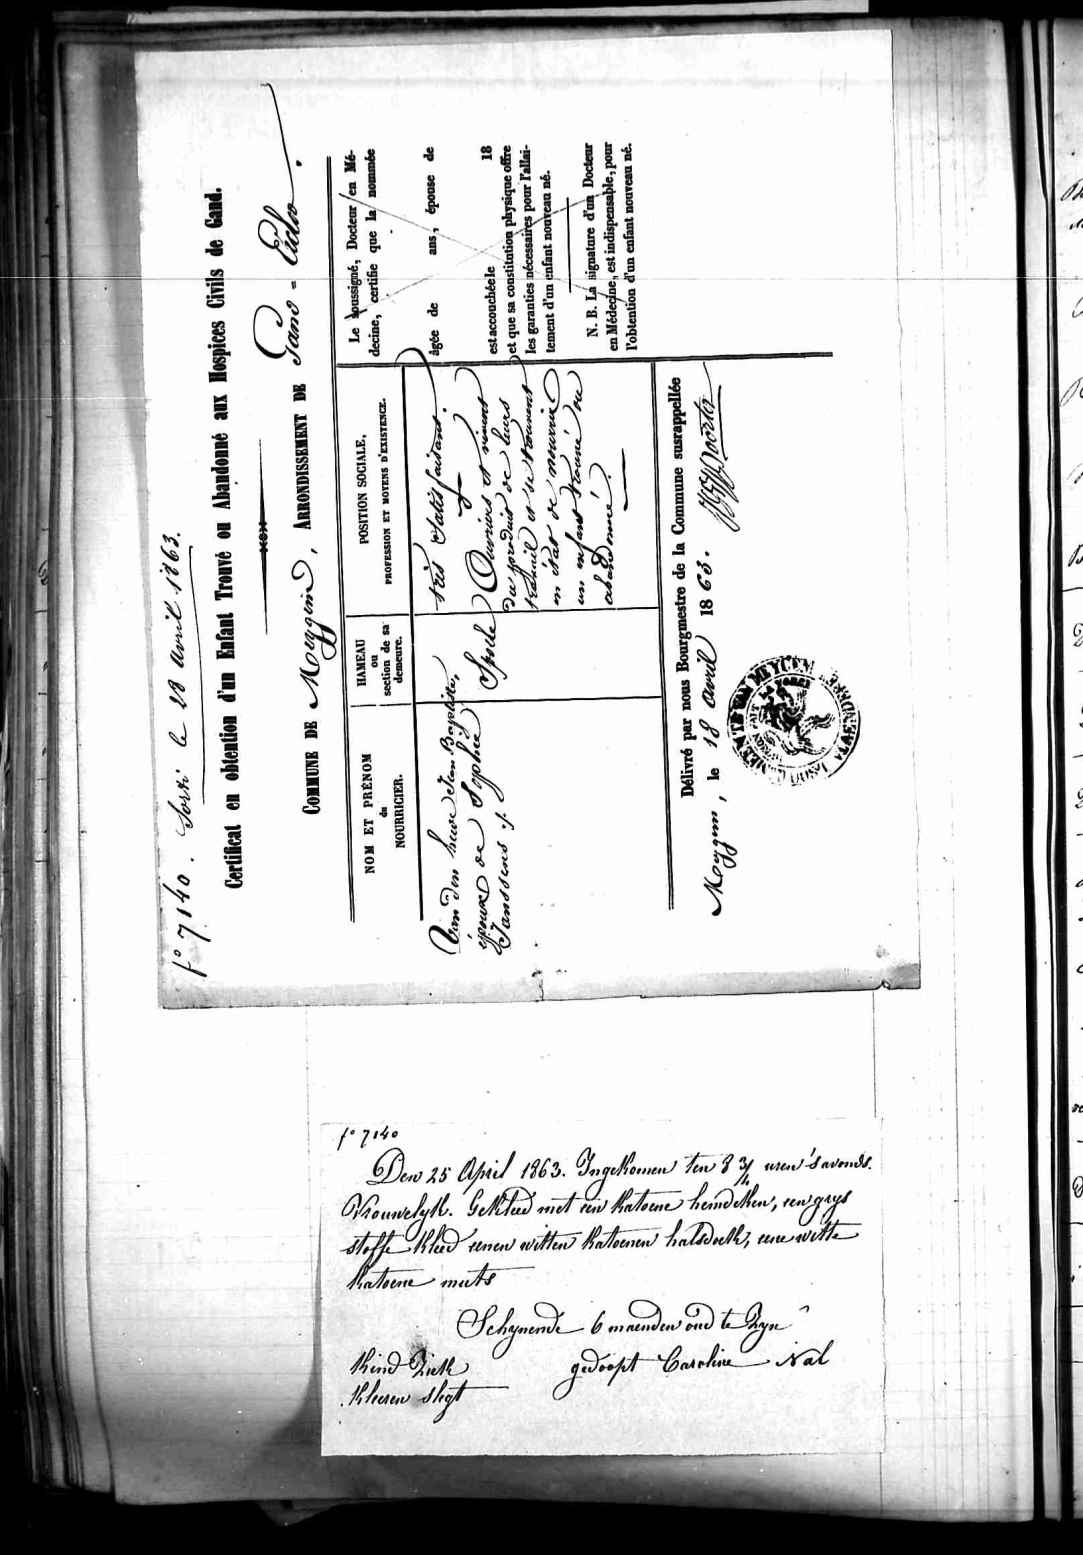 f° 7140. Sorti le 28 avril 1863.
Certificat en obtention d'un Enfant Trouvé ou Abandonné aux Hospices Civils de Gand.
COMMUNE DE Meygem, ARRONDISSEMENT DE Gand-Eecloo.
NOM ET PRÉNOM
du
NOURRICIER.
Van den heuve Jean Baptiste,
époux de Sophie
Janssens ./.
HAMEAU
ou
section de sa
demeure.
POSITION SOCIALE,
PROFESSION ET MOYENS D'EXISTENCE.
très satisfaisant.
Ouvriers et vivent
du produit de leurs
travail et se trouvent
en état de nourrir
un enfant trouvé ou
abandonné.
Le soussigné, Docteur en Mé-
decine, certifie que la nommée
âgée de ans, épouse de
est accouchée le 18
et que sa constitution physique offre
les garanties nécessaires pour l'allai-
tement d'un enfant nouveau né.
N. B. La signature d'un Docteur
en Médecine, est indispensable, pour
l'obtention d'un enfant nouveau né.
Délivré par nous Bourgmestre de la Commune susrappellée
Meygem, le 18 avril 1863.
f° 7140
Den 25 April 1863. Ingekomen ten 8 3/4 uren 's avonds.
Vrouwelyk. Gekleed met een katoene hemdeken, een grys
stoffe kleed eenen witten katoenen halsdoek, eene witte
katoene muts
Schynende 6 maenden oud te zyn
kind ziek gedoopt Caroline Nal
kleeren slegt